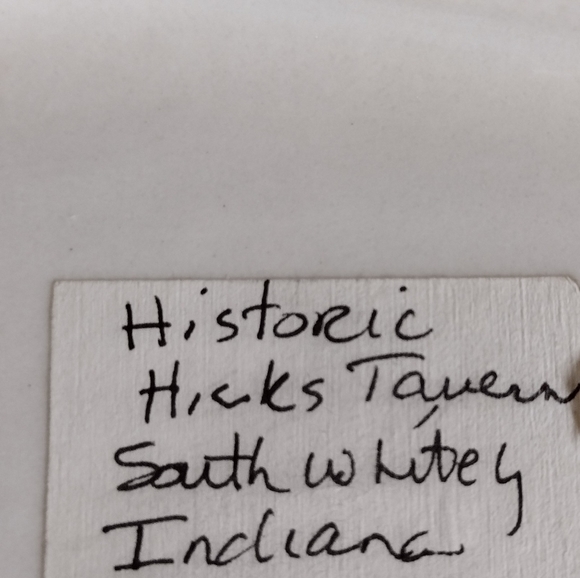 Historic
Hicks Tavern
South Whitley
Indiana